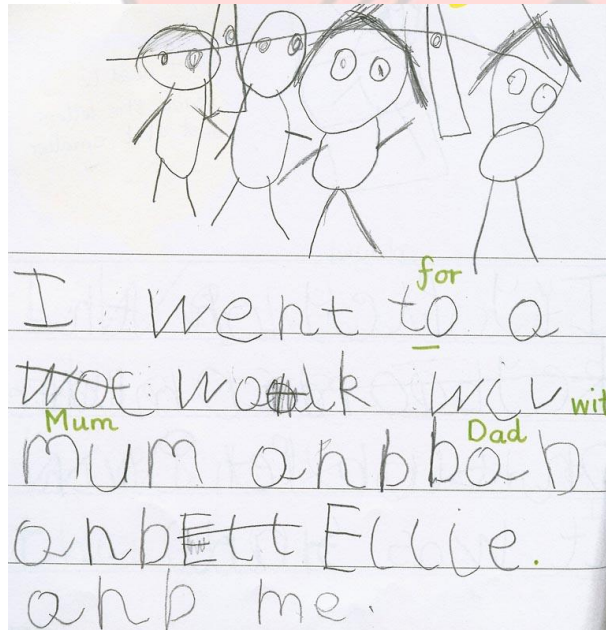 for
I went to a
woe woalk wiv wit
Mum Dad
mum anb bab
anb Ell Ellie.
anb me.